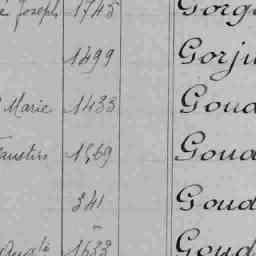 Joseph 1745 Gorg
1499 Gorju
Marie 1433 Goud
Faustin 1569 Goud
341 Goud
1533 Goud